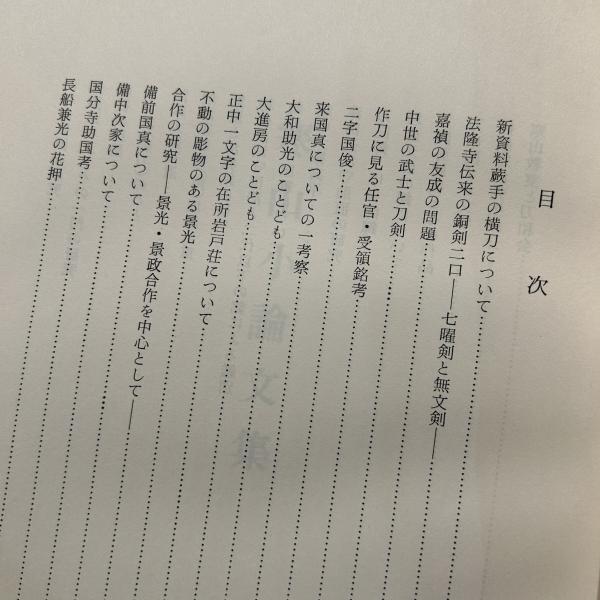 目次
新資料蕨手の横刀について
法隆寺伝来の銅剣二口――七曜剣と無文剣――
嘉禎の友成の問題
中世の武士と刀剣
作刀に見る任官・受領銘考
二字国俊
来国真についての一考察
大和助光のことども
大進房のことども
正中一文字の在所岩戸荘について
不動の彫物のある景光
合作の研究――景光・景政合作を中心として――
備前国真について
備中次家について
国分寺助国考
長船兼光の花押